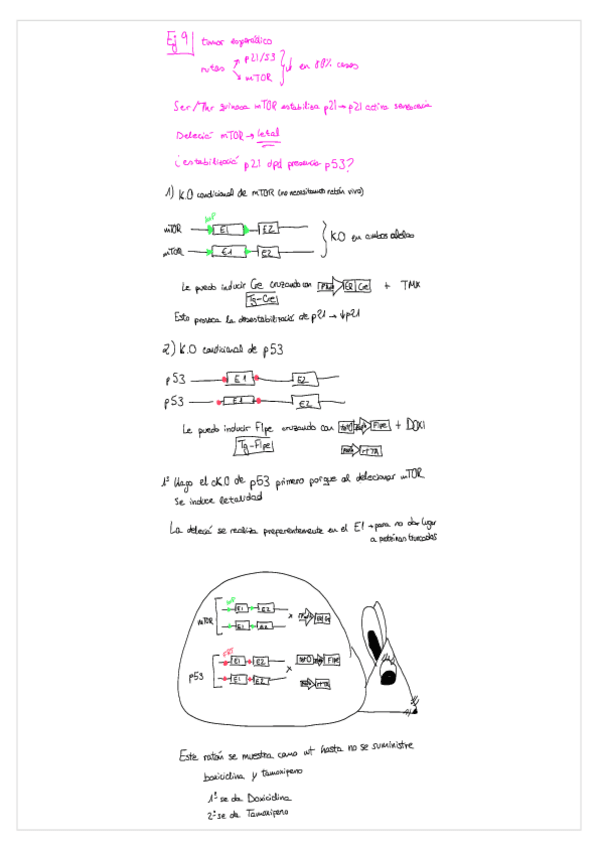 Ej 9 tumor esporádico
rutas p21/53
mTOR
↓ en 80% casos
Ser/Thr quinasa mTOR estabiliza p21 → p21 activa senescencia
Deleció mTOR → letal
¿estabilizació p21 dpd presencia p53?
1) K.O condicional de mTOR (no necesitamos ratón vivo)
loxP
mTOR E1 E2
mTOR E1 E2
K.O en ambos alelos
Le puedo inducir Cre cruzando con ER Cre + TMX
Tg-Cre
Esto provoca la desestabilizació de p21 → ↓p21
2) K.O condicional de p53
p53 E1 E2
p53 E1 E2
Le puedo inducir Flpe cruzando con tetO Flpe + DOXI
Tg-Flpe
rtTA
1º Hago el cKO de p53 primero porque al delecionar mTOR
se induce letalidad
La deleció se realiza preferentemente en el E1 → para no dar lugar
a proteínas truncadas
loxP
mTOR E1 E2 x ER Cre
E1 E2
FRT
p53 E1 E2 x tetO Flpe
E1 E2 rtTA
Este ratón se muestra como wt hasta no se suministre
doxiciclina y tamoxifeno
1º se da Doxiciclina
2º se da Tamoxifeno